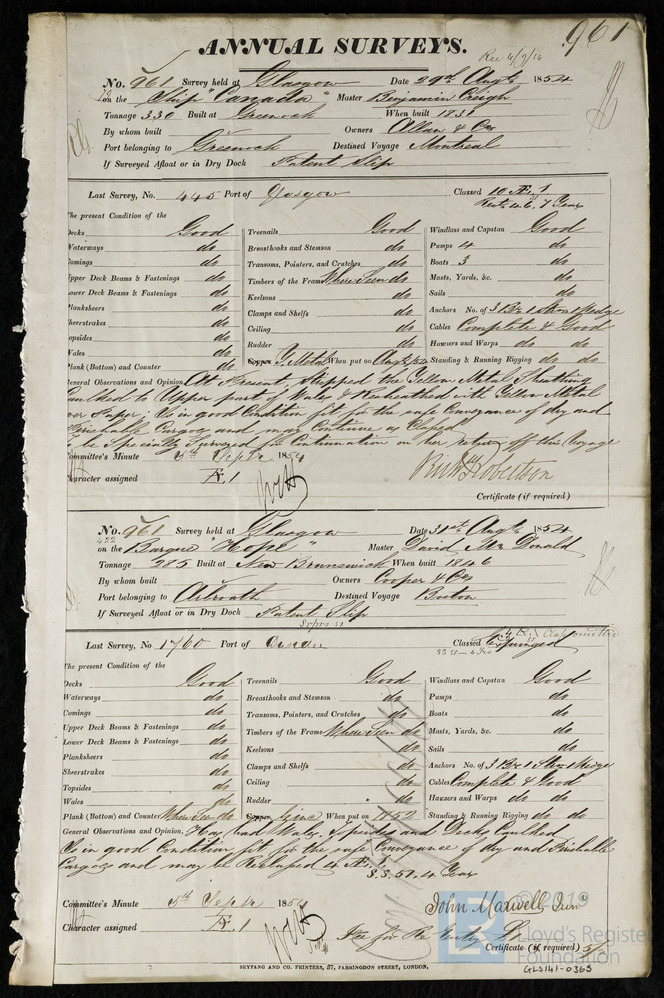 961
ANNUAL SURVEYS.
Rec 4/9/54
No. 961 Survey held at Glasgow Date 29th Augt 1854
on the Ship "Canada" Master Benjamin Creigh
Tonnage 330 Built at Greenock When built 1831
By whom built Owners Allan & Co
Port belonging to Greenock Destined Voyage Montreal
If Surveyed Afloat or in Dry Dock Patent Slip
Last Survey, No. 445 Port of Glasgow Classed 10 Æ.1
7 Years
The present Condition of the
Decks Good Treenails Good Windlass and Capstan Good
Waterways do Breasthooks and Stemson do Pumps 4 do
Comings do Transoms, Pointers, and Crutches do Boats 3 do
Upper Deck Beams & Fastenings do Timbers of the Frame Where Seen do Masts, Yards, &c. do
Lower Deck Beams & Fastenings do Keelsons do Sails do
Planksheers do Clamps and Shelfs do Anchors No. of 3 Br 1 Strm 1 Kedge
Sheerstrakes do Ceiling do Cables Complete & Good
Topsides do Rudder do Hawsers and Warps do do
Wales do Copper Y. Metal When put on Augt/54 Standing & Running Rigging do do
Plank (Bottom) and Counter do
General Observations and Opinion, At Present, Stripped the Yellow Metal Sheathing
Caulked to Upper part of Wales & Resheathed with Yellow Metal
over Paper; Is in good Condition fit for the safe Conveyance of dry and
Perishable Cargoes and may Continue as Classed
To be Specially Surveyed for Continuation on her return off this Voyage
Committee's Minute 5th Septr 1854
Character assigned Æ.1
Robertson
Certificate (if required)
No. 961 Survey held at Glasgow Date 31st Augt 1854
422
on the Barque "Hope" Master David McDonald
Tonnage 285 Built at New Brunswick When built 1846
By whom built Owners Cooper & Co
Port belonging to Arbroath Destined Voyage Boston
If Surveyed Afloat or in Dry Dock Patent Slip
Last Survey, No 1760 Port of Dundee Classed Expunged
The present Condition of the
Decks Good Treenails Good Windlass and Capstan Good
Waterways do Breasthooks and Stemson do Pumps do
Comings do Transoms, Pointers, and Crutches do Boats do
Upper Deck Beams & Fastenings do Timbers of the Frame Where Seen do Masts, Yards, &c. do
Lower Deck Beams & Fastenings do Keelsons do Sails do
Planksheers do Clamps and Shelfs do Anchors No. of 3 Br 1 Strm 1 Kedge
Sheerstrakes do Ceiling do Cables Complete & Good
Topsides do Rudder do Hawsers and Warps do do
Wales do Copper Zinc When put on 1852 Standing & Running Rigging do do
Plank (Bottom) and Counter Where Seen do
General Observations and Opinion, Has had Wales, Topsides and Decks Caulked
Is in good Condition, fit for the safe Conveyance of dry and Perishable
Cargoes and may be Reclassed Æ.1.
S.S. 51. 4 Years
Committee's Minute 5th Septr 1854
Character assigned Æ.1
John Maxwell Junr
Fee for Re Entry
Certificate (if required) 5/
SEYFANG AND CO. PRINTERS, 57, FARRINGDON STREET, LONDON.
© 2019
Lloyd's Register
Foundation
GLS141-0365